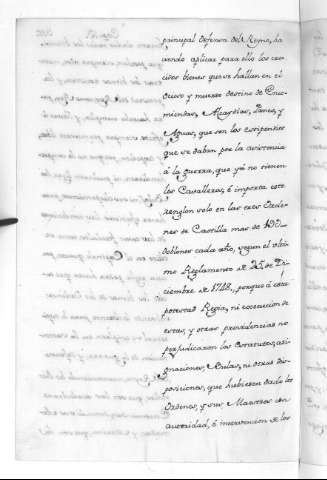 principal defensa del Reyno, ha
ciendo aplicar para ello los cre
cidos bienes que se hallan en el
duro y muerto destino de Enco
miendas, Alcaydias, Panes, y
Aguas, que son los estipendios
que se daban por la asistencia
á la guerra, que yá no tienen
los Cavalleros, é importa este
renglon solo en las tres Orde
nes de Castilla mas de
doblones cada año, segun el ulti
mo Reglamento de 25 de Di
ciembre de 1728, porque á esta
potestad Regia, ni execucion de
estas, y otras providencias no
perjudicaron los Estatutos, asi
gnaciones, Bulas, ni otras dis
posiciones, que hubiesen dado las
Ordenes, y sus Maestres con
autoridad, é intervencion de los